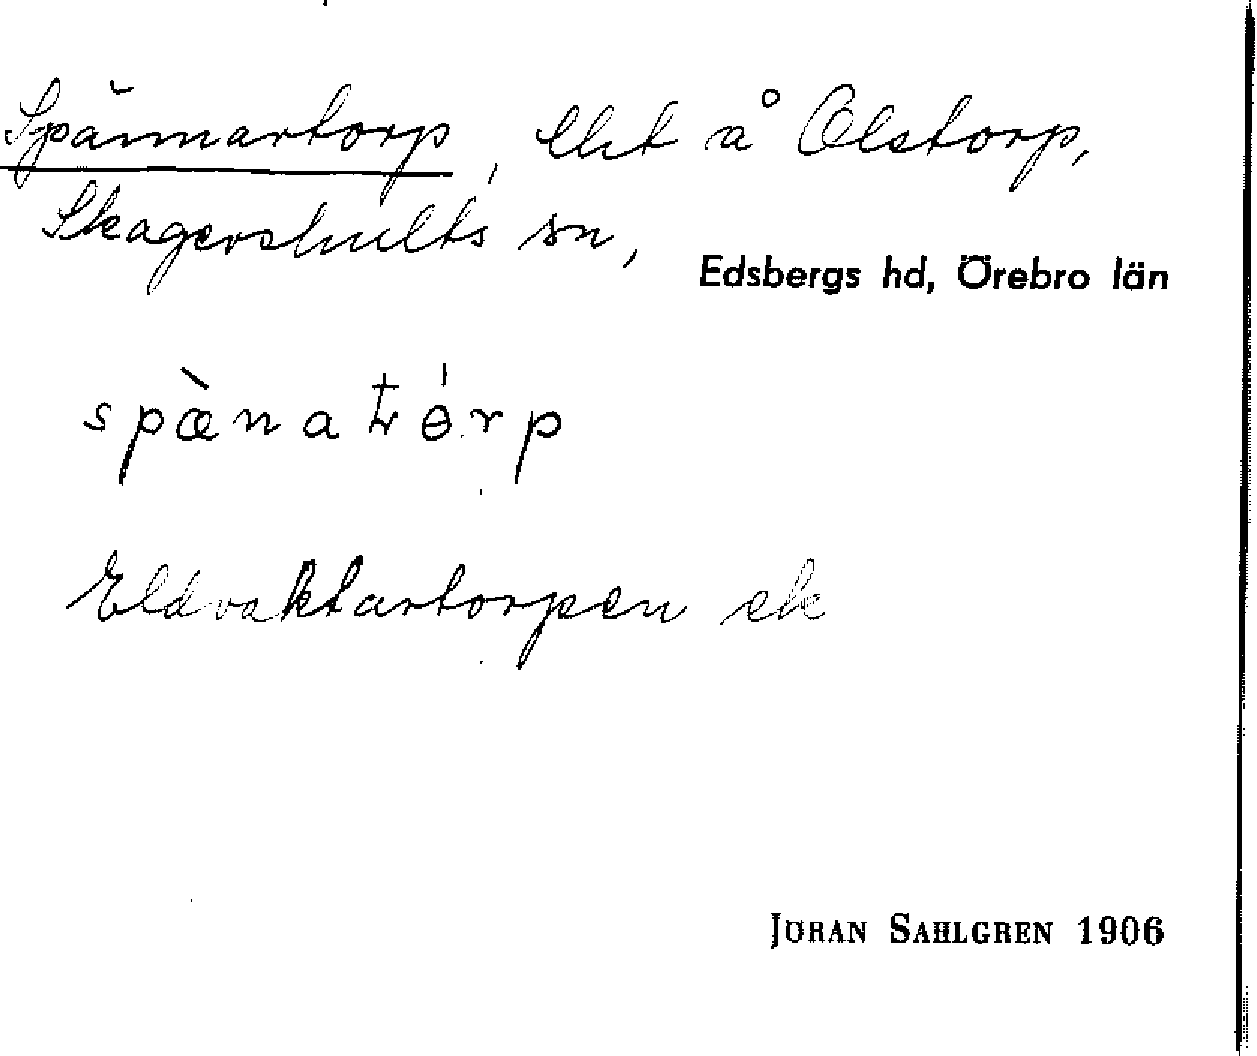 Spännartorp, lht å Olstorp,
Skagershults sn,
Edsbergs hd, Örebro län
spænatørp
Eldvaktartorpen ek
JÖRAN SAHLGREN 1906